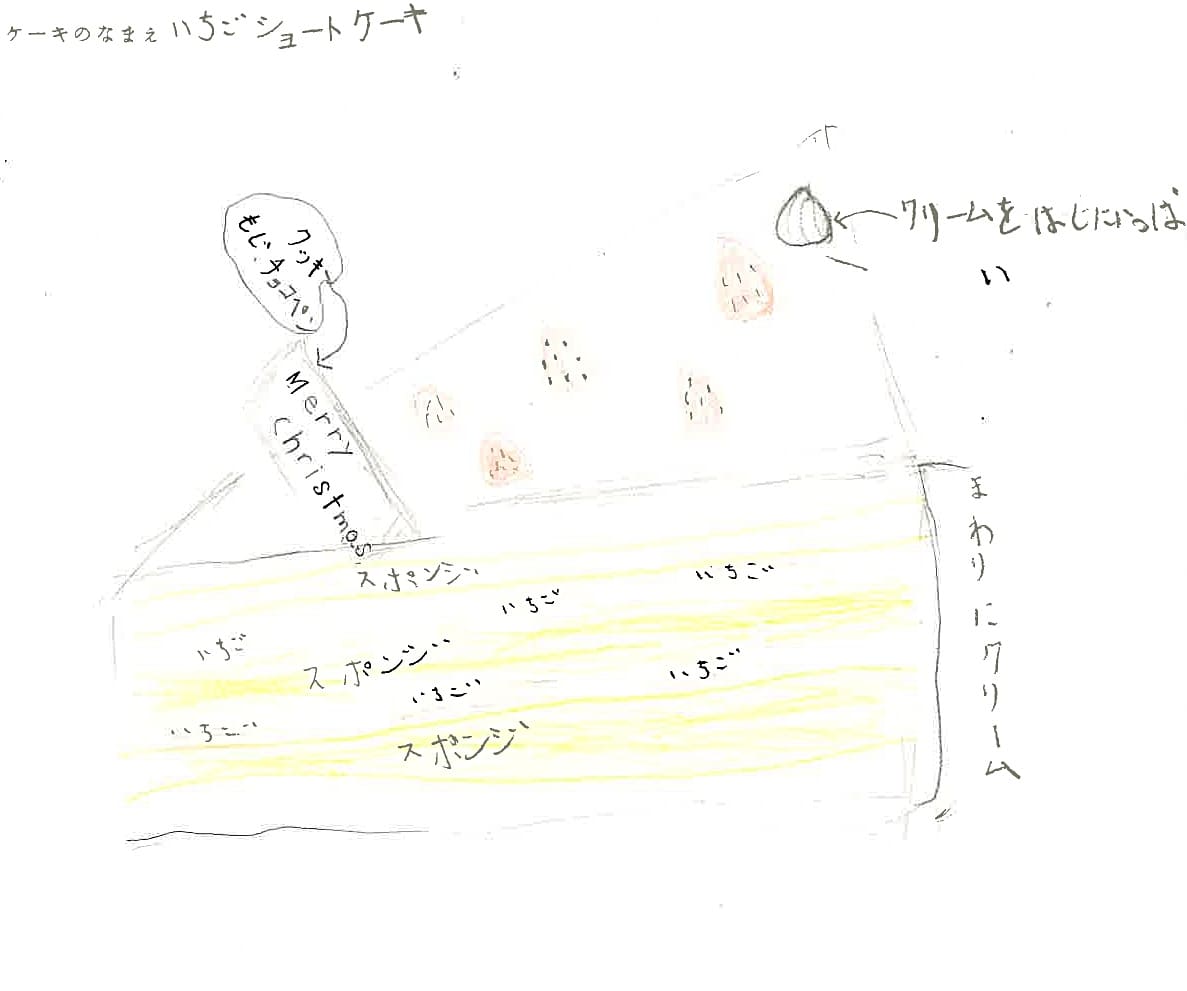 ケーキのなまえ いちごショートケーキ
クリームをはじにいっぱ
い
クッキー
もじ、チョコペン
Merry
Christmas
まわりにクリーム
スポンジ
いちご
いちご
いちご
スポンジ
いちご
いちご
いちご
スポンジ